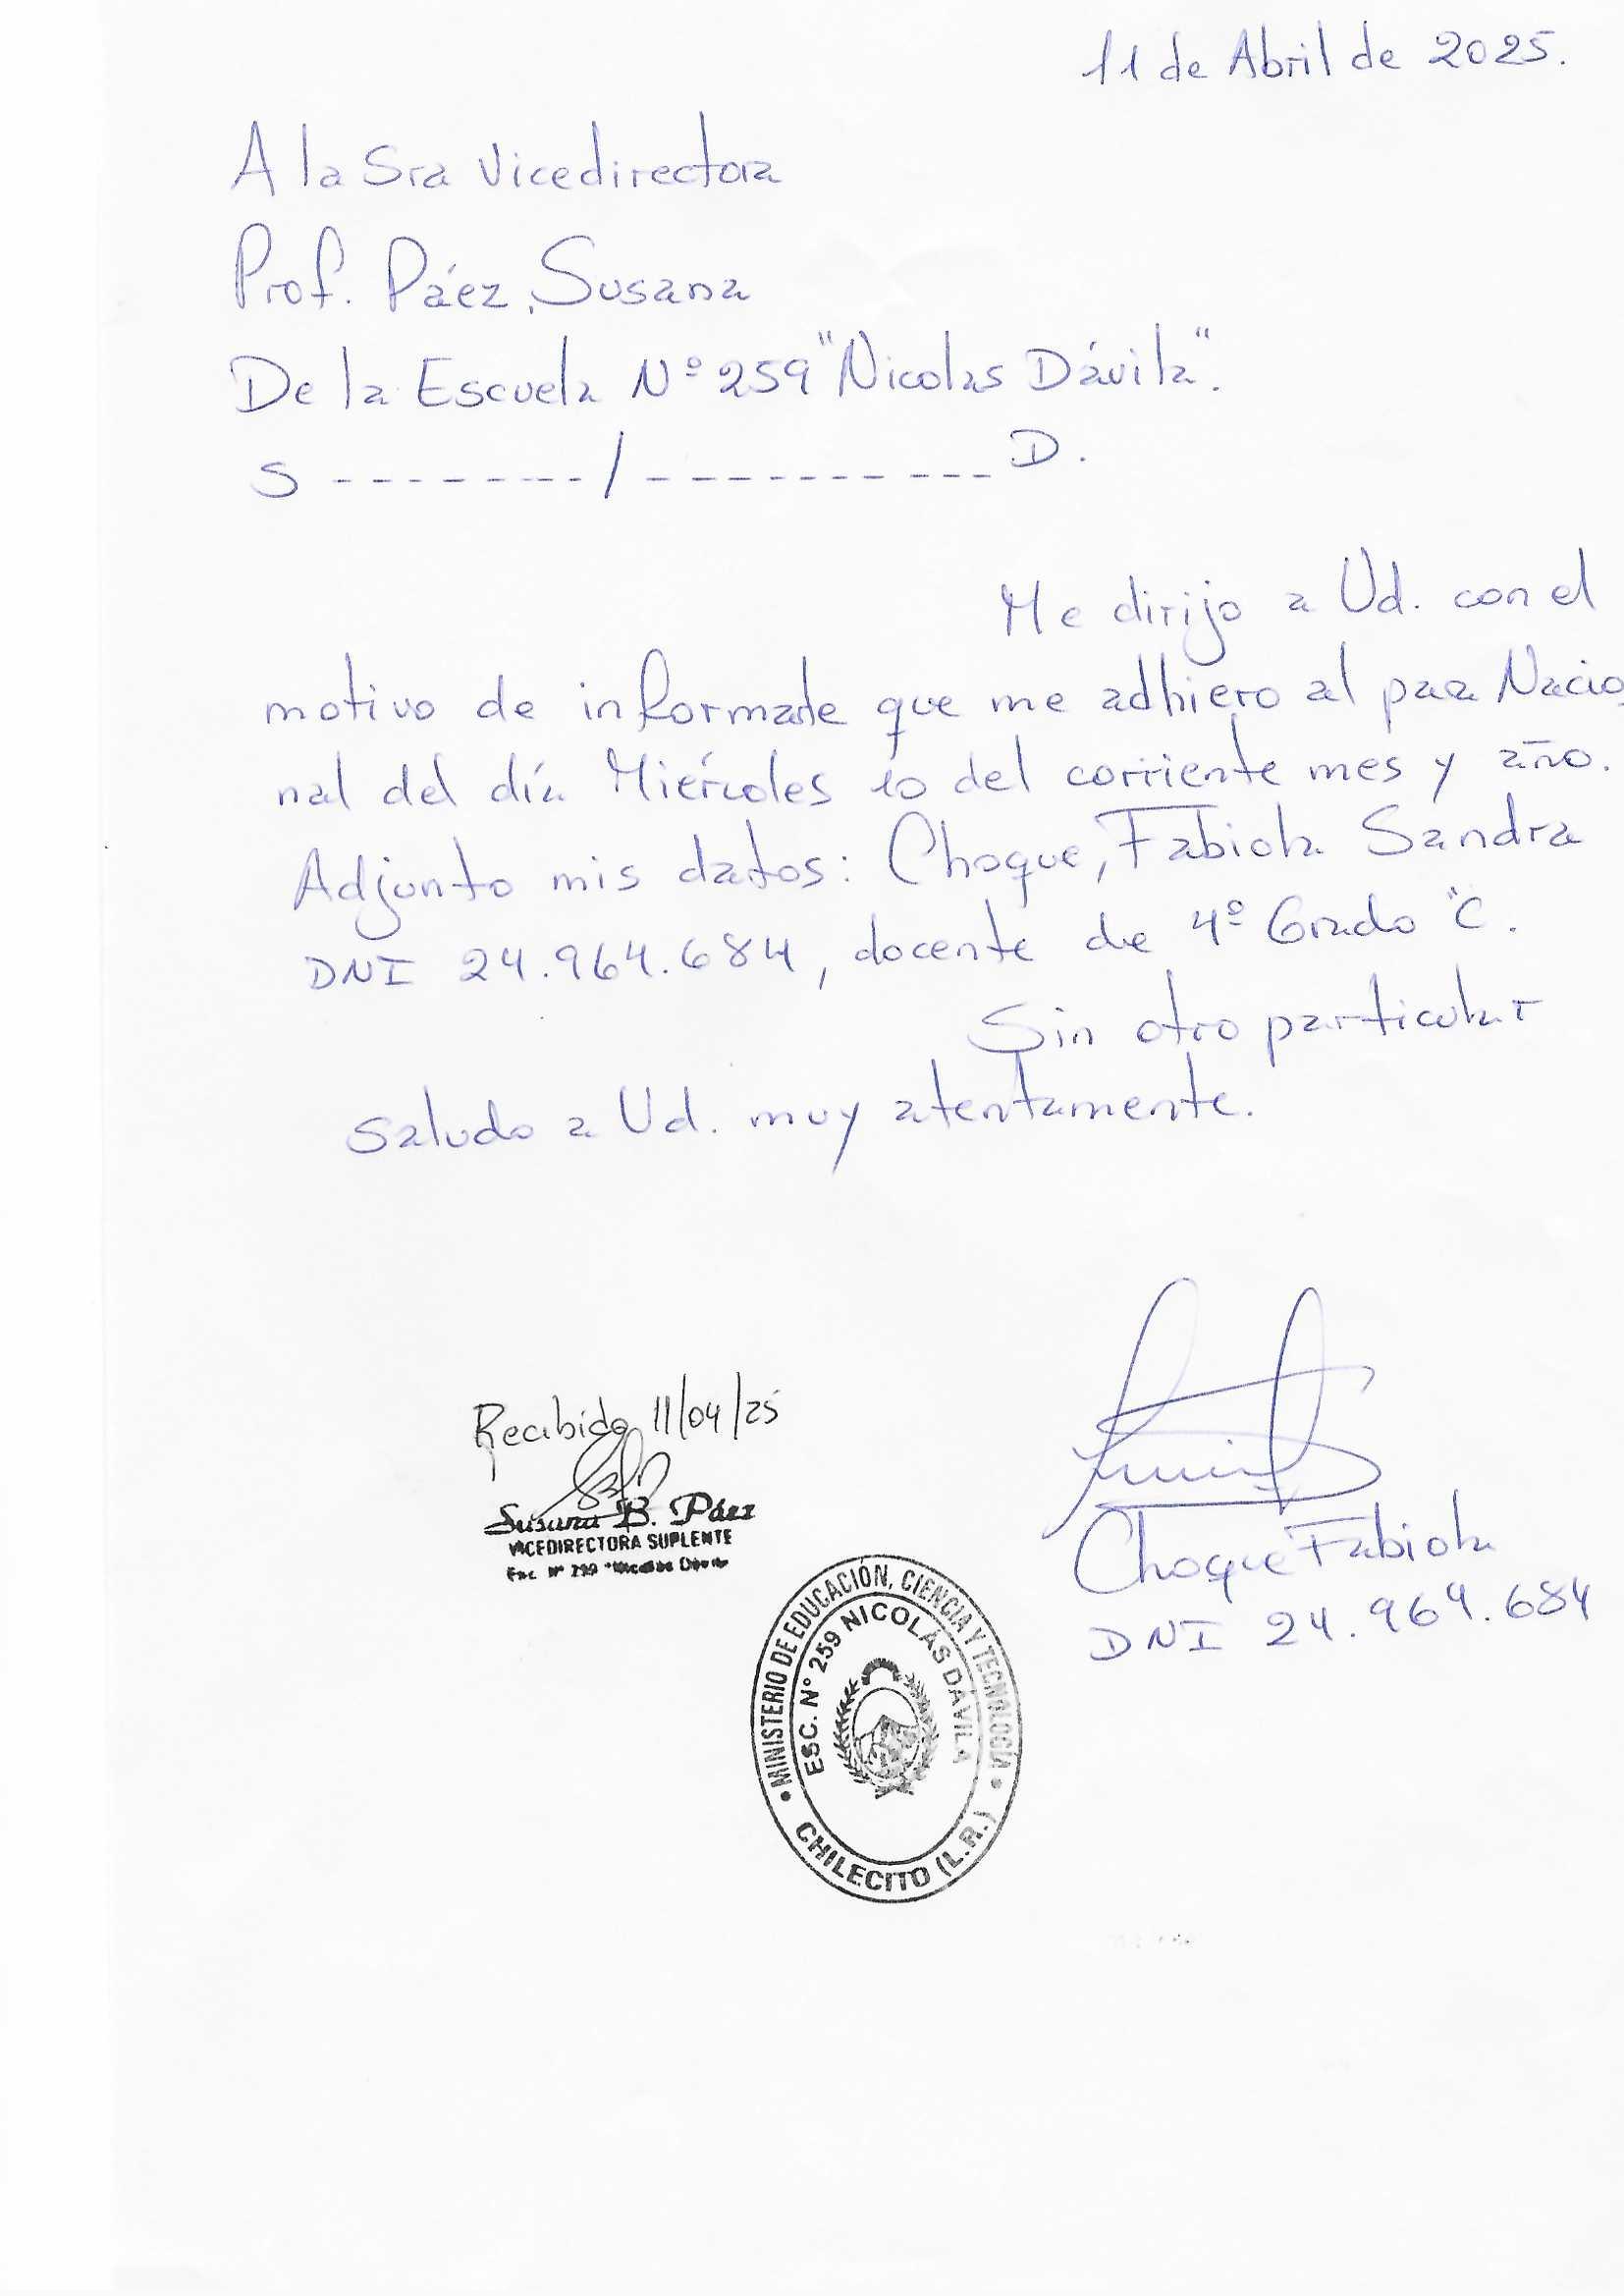 11 de Abril de 2025.
A la Sra Vicedirectora
Prof. Páez, Susana
De la Escuela Nº 259 "Nicolas Dávila".
S -------/----------- D.
Me dirijo a Ud. con el
motivo de informarle que me adhiero al paa Nacio
nal del día Miércoles 10 del corriente mes y año.
Adjunto mis datos: Choque, Fabiola Sandra
DNI 24.964.684, docente de 4º Grado "C.
Sin otro particular
saludo a Ud. muy atentamente.
Recibido 11/04/25
Susana B. Páez
VICEDIRECTORA SUPLENTE
Esc. Nº 259 "Nicolás Dávila
Choque Fabiola
DNI 24.964.684
• MINISTERIO DE EDUCACIÓN, CIENCIA Y TECNOLOGÍA •
ESC. N° 259 NICOLÁS DÁVILA
CHILECITO (L.R.)